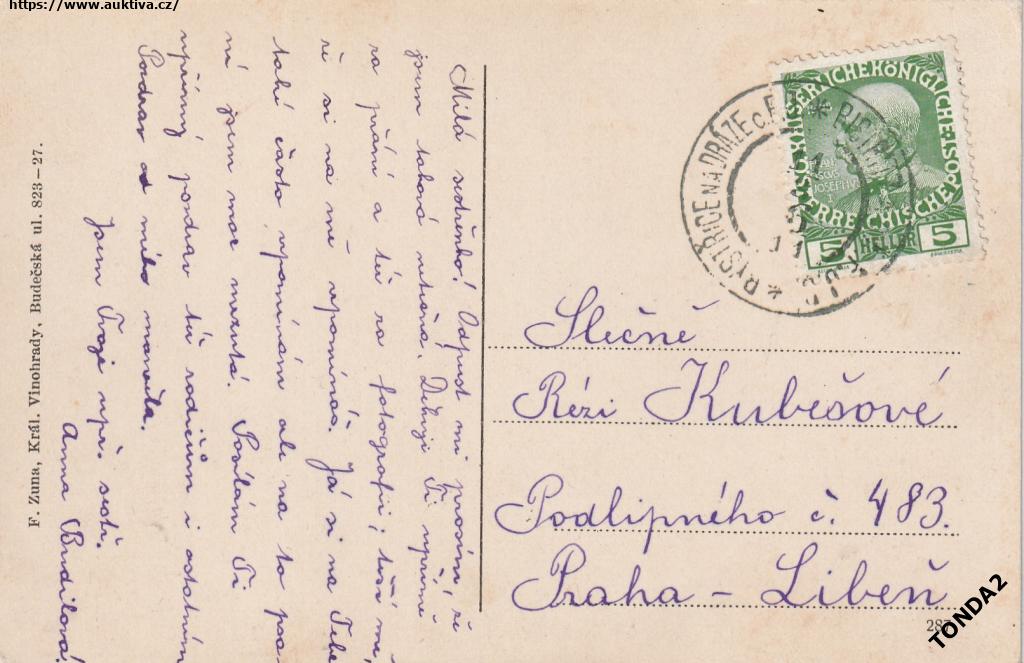 https://www.auktiva.cz/
Milá sestřenko! Odpust mi prosím, že
jsem taková nectná. Děkuji Ti upřímě
za přání a též za fotografii; těší mě,
že si na mě vzpomínáš. Já si na Tebe
také často vzpomínám ale na to psa-
ní jsem moc mrzutá. Posílám Ti
upřímný pozdrav též rodičům i ostatním
Pozdrav od mého manžela.
Jsem Tvoje upř. sestř.
Anna Brdilová.
F. Zuna, Král. Vinohrady, Budečská ul. 823–27.
KAISERLICHE KÖNIGLICHE ÖSTERREICHISCHE POST
5 HELLER 5
BYSTŘICE NA DRÁZE C.F.J.
Slečně
Rézi Kubešové
Podlipného č. 483.
Praha – Libeň
287
TONDA2